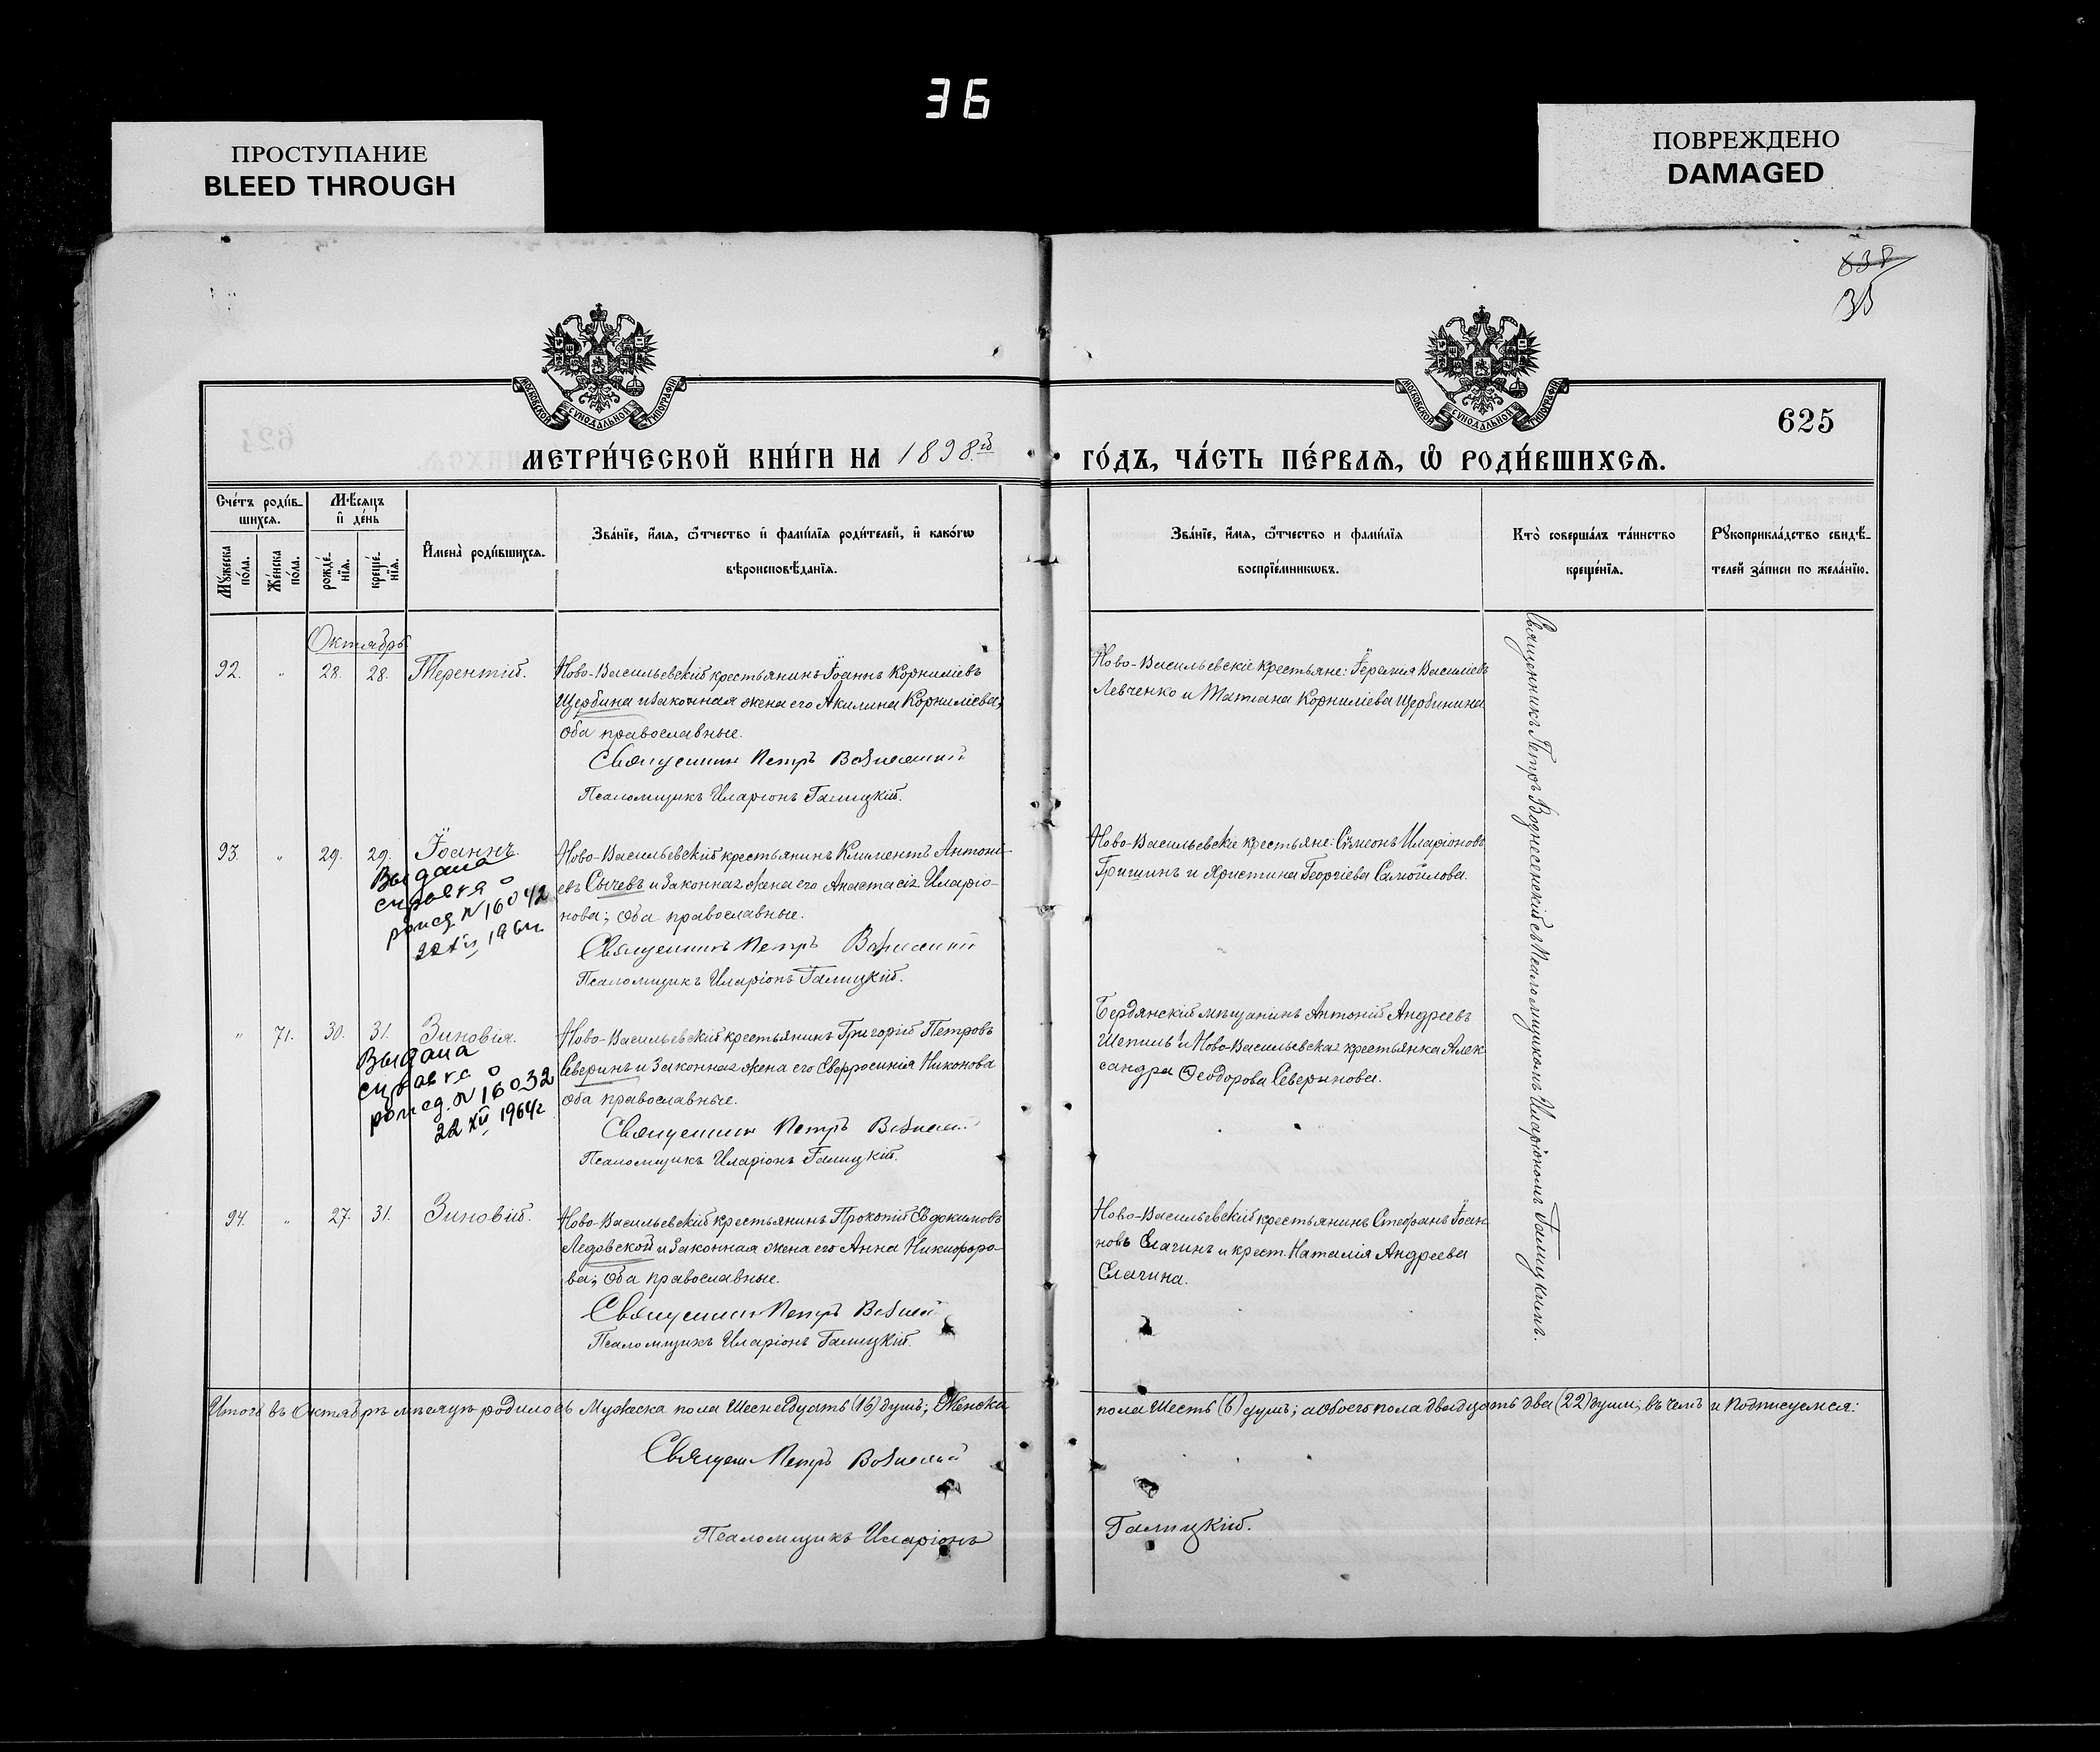 36
ПРОСТУПАНИЕ
BLEED THROUGH
ПОВРЕЖДЕНО
DAMAGED
638
35
МОСКОВСКОЙ СѴНОДАЛЬНОЙ ТИПОГРАФІИ
МОСКОВСКОЙ СѴНОДАЛЬНОЙ ТИПОГРАФІИ
625
МЕТРИ́ЧЕСКОЙ КНИ́ГИ НА 1898й
ГО́ДЪ, ЧА́СТЬ ПЕ́РВАѦ, Ѡ҆ РОДИ́ВШИХСѦ.
Сче́тъ роди́в-
шихсѧ.
Мꙋжеска по́ла.
Же́нска по́ла.
Мѣ́сѧцъ
и҆ де́нь
рожде́нїѧ.
креще́нїѧ.
И҆мена̀ роди́вшихсѧ.
Зва́нїе, и҆́мѧ, ѻ҆́тчество и҆ фами́лїѧ роди́телей, и҆ како́гѡ
вѣроисповѣ́данїѧ.
Зва́нїе, и҆́мѧ, ѻ҆́тчество и фами́лїѧ
воспрїе́мникѡвъ.
Кто̀ соверша́лъ та́инство
креще́нїѧ.
Рꙋкоприкла́дство свидѣ́-
телей за́писи по жела́нїю.
Октябрь
92. " 28. 28. Терентій.
Ново-Васильевскій крестьянинъ Іоаннъ Корниліевъ
Щербина и законная жена его Акилина Корниліева;
оба православные.
Священникъ Петръ Вознесенскій
Псаломщикъ Иларіонъ Галицкій.
Ново-Васильевскіе крестьяне: Іеремія Василіевъ
Левченко и Татіана Корниліева Щербинина
Священникъ Петръ Вознесенскій съ Псаломщикомъ Иларіономъ Галицкимъ.
93. " 29. 29. Іоаннъ.
Выдана
справка о
рожд. N 16042
22 XII 1964г.
Ново-Васильевскій крестьянинъ Климентъ Антоні-
евъ Сычевъ и законная жена его Анастасія Иларіо-
нова; оба православные.
Священникъ Петръ Вознесенскій
Псаломщикъ Иларіонъ Галицкій.
Ново-Васильевскіе крестьяне: Сѵмеонъ Иларіоновъ
Гришинъ и Христина Георгіева Самойлова.
" 71. 30. 31. Зиновія.
Выдана
справка о
рожд. N 16032
22 XII 1964г
Ново-Васильевскій крестьянинъ Григорій Петровъ
Северинъ и законная жена его Евфросинія Никонова
оба православные.
Священникъ Петръ Вознесенскій
Псаломщикъ Иларіонъ Галицкій.
Бердянскій мѣщанинъ Антоній Андреевъ
Шепиль и Ново-Васильевская крестьянка Алек
сандра Ѳеодорова Северинова.
94. " 27. 31. Зиновій.
Ново-Васильевскій крестьянинъ Прокопій Евдокимовъ
Ледовской и законная жена его Анна Никифоро-
ва; оба православные.
Священникъ Петръ Вознесенскій
Псаломщикъ Иларіонъ Галицкій.
Ново-Васильевскій крестьянинъ Стефанъ Іоан
новъ Елагинъ и крест. Наталія Андреева
Елагина.
Итого въ Октябрѣ мѣсяцѣ родилось мужеска пола шеснедцать (16) душъ; женска
пола шесть (6) душъ; а обоего пола двадцать два (22) души; въ чемъ и подписуемся:
Священ. Петръ Вознесенскій
Псаломщикъ Иларіонъ
Галицкій.